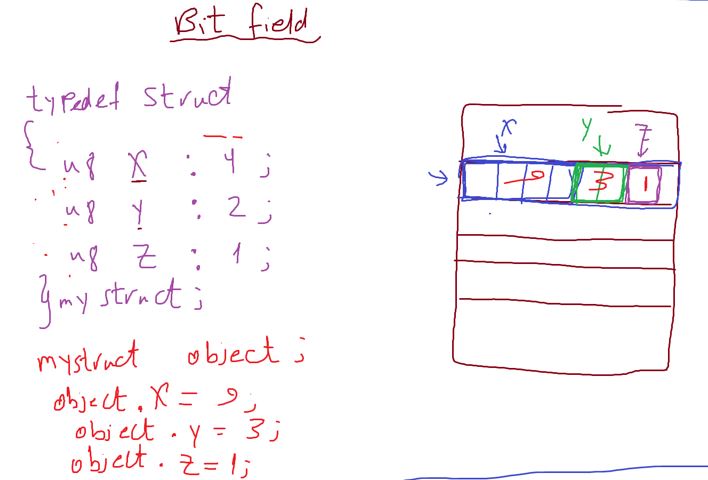 Bit field
typedef struct
{ u8 X : 4 ;
u8 y : 2 ;
u8 Z : 1 ;
} my struct ;
mystruct object ;
object . X = 9 ;
object . y = 3 ;
object . Z = 1 ;
X y Z
9 3 1